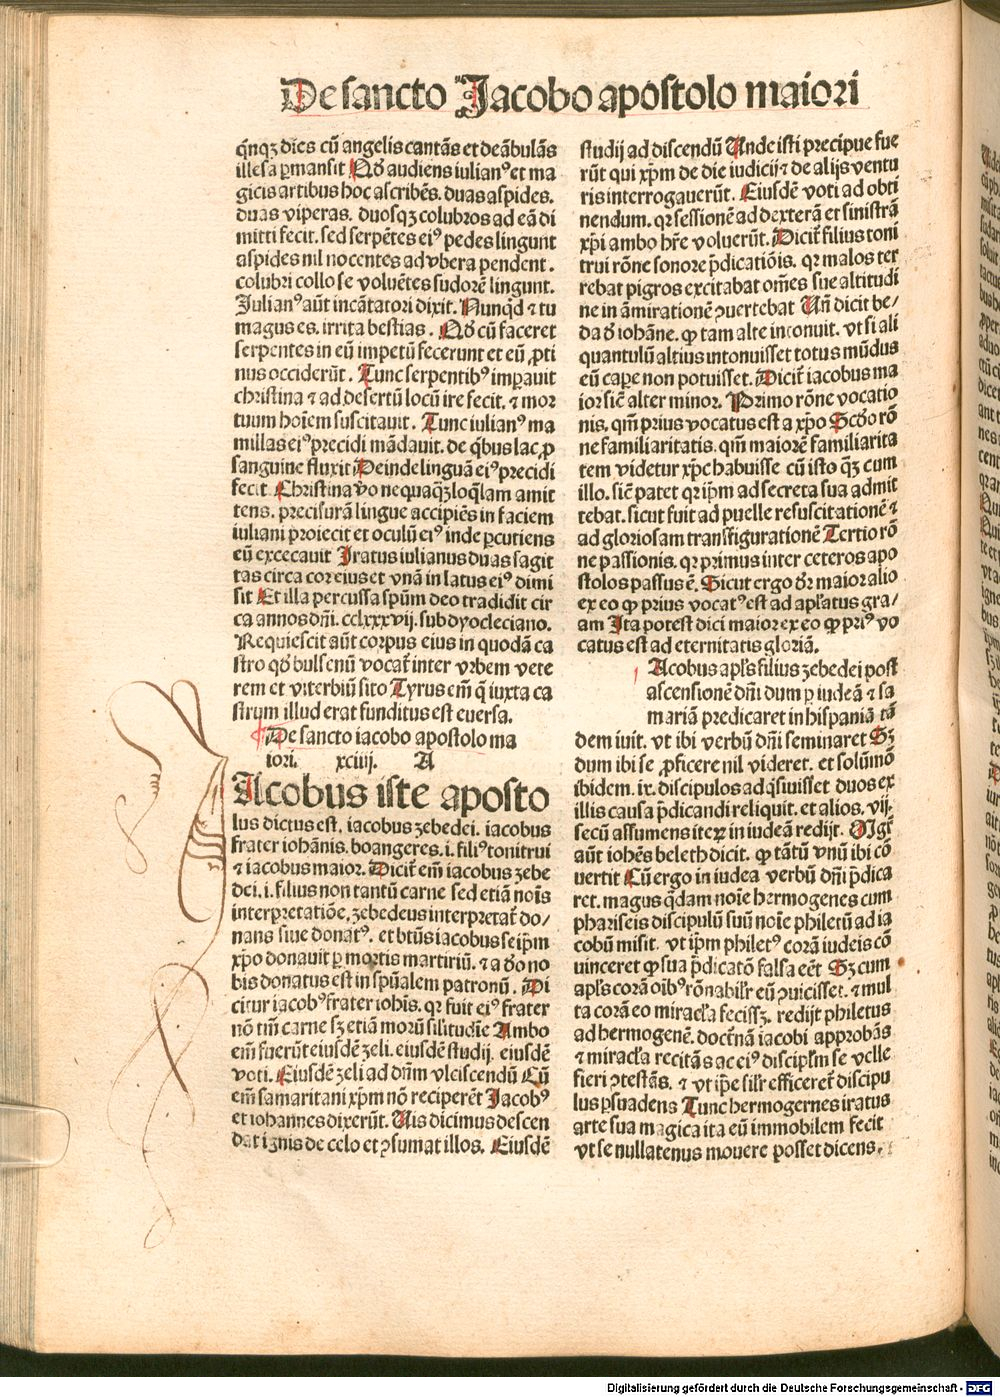 De sancto Jacobo apostolo maiori
qͥnqꝫ dies cū angelis cantās et deābulās
illesa ꝑmansit Qḋ audiens iulianꝰ et ma
gicis artibus hoc ascribēs. duas aspides.
duas viperas. duosqꝫ colubros ad eā di
mitti fecit. sed serpētes eiꝰ pedes lingunt
aspides nil nocentes ad vbera pendent.
colubri collo se voluētes sudorē lingunt.
Julianꝰ aūt incātatori dixit. Nunqͥd ⁊ tu
magus es. irrita bestias. Qḋ cū faceret
serpentes in eū impetū fecerunt et eū ꝓti
nus occiderūt. Tunc serpentibꝰ imꝑauit
christina ⁊ ad desertū locū ire fecit. ⁊ mor
tuum hoīem suscitauit. Tunc iulianꝰ ma
millas eiꝰ precidi mādauit. de qͥbus lac ꝓ
sanguine fluxit Deinde linguā eiꝰ precidi
fecit. Christina v̊o nequaqͣꝫ loqͣlam amit
tens. precisurā lingue accipiēs in faciem
iuliani proiecit et oculū eiꝰ inde ꝑcutiens
eū excecauit Iratus iulianus duas sagit
tas circa cor eius et vnā in latus eiꝰ dimi
sit Et illa percussa spūm deo tradidit cir
ca annos dn̄i. cclxxxvij. sub dyocleciano.
Requiescit aūt corpus eius in quodā ca
stro qḋ bulsenū vocat̄ inter vrbem vete
rem et viterbiū sito Tyrus em̄ q̄ iuxta ca
strum illud erat funditus est euersa.
De sancto iacobo apostolo ma
iori. xciiij. A
IAcobus iste aposto
lus dictus est. iacobus zebedei. iacobus
frater iohānis. boangeres. i. filiꝰ tonitrui
⁊ iacobus maior. Dicit̄ em̄ iacobus zebe
dei. i. filius non tantū carne sed etiā nois̄
interpretatiōe, zebedeus interpretat̄ do/
nans siue donatꝰ. et bt̄us iacobus seip̄m
xp̄o donauit ꝑ mortis martiriū. ⁊ a deo no
bis donatus est in spūalem patronū. Di
citur iacobꝰ frater iohis̄. qꝛ fuit eiꝰ frater
nō tm̄ carne sꝫ etiā morū silitudīe Ambo
em̄ fuerūt eiusdē zeli. eiusdē studij. eiusdē
voti. Eiusdē zeli ad dn̄m vlciscendū Cū
em̄ samaritani xp̄m nō reciperēt Jacobꝰ
et iohannes dixerūt. Uis dicimus descen
dat ignis de celo et ꝯsumat illos. Eiusdē
studij ad discendū Unde isti precipue fue
rūt qui xp̄m de die iudicij ⁊ de alijs ventu
ris interrogauerūt. Eiusdē voti ad obti
nendum. qꝛ sessionē ad dexterā et sinistrā
xp̄i ambo hr̄e voluerūt. Dicit̄ filius toni
trui rōne sonore p̄dicatiōis. qꝛ malos ter
rebat pigros excitabat om̄es sue altitudi
ne in āmirationē ꝯuertebat Un̄ dicit be/
da ḋ iohāne. ꝙ tam alte intonuit. vt si ali
quantulū altius intonuisset totus mūdus
eū capere non potuisset. Dicit̄ iacobus ma
ior sic̄ alter minor. Primo rōne vocatio
nis. qm̄ prius vocatus est a xp̄o Scḋo rō
ne familiaritatis. qm̄ maiorē familiarita
tem videtur xp̄c habuisse cū isto qͣꝫ cum
illo. sic̄ patet qꝛ ip̄m ad secreta sua admit
tebat. sicut fuit ad puelle resuscitationē ⁊
ad gloriosam transfigurationē Tertio rō
ne passionis. qꝛ primus inter ceteros apo
stolos passus ē. Sicut ergo dr̄ maior alio
ex eo ꝙ prius vocatꝰ est ad apl̄atus gra/
am Ita potest dici maior ex eo ꝙ priꝰ vo
catus est ad eternitatis gloriā.
Acobus apl̄s filius zebedei post
ascensionē dn̄i dum ꝑ iudeā ⁊ sa
mariā predicaret in hispaniā tā
dem iuit. vt ibi verbū dn̄i seminaret Sꝫ
dum ibi se ꝓficere nil videret. et solūmō
ibidem. ix. discipulos adqͥsiuisset duos ex
illis causa p̄dicandi reliquit. et alios. vij.
secū assumens iteꝝ in iudeā redijt. Mgr̄
aūt iohēs beleth dicit. ꝙ tātū vnū ibi cō
uertit Cū ergo in iudea verbū dn̄i p̄dica
ret. magus qͥdam noīe hermogenes cum
phariseis discipulū suū noīe philetū ad ia
cobū misit. vt ip̄m philetꝰ corā iudeis cō
uinceret ꝙ sua p̄dicatō falsa eēt Sꝫ cum
apl̄s corā oībꝰ rōnabilr̄ eū ꝯuicisset. ⁊ mul
ta corā eo miracl̄a fecissꝫ. redijt philetus
ad hermogenē. doct̄nā iacobi approbās
⁊ miracl̄a recitās ac eiꝰ discipl̄m se velle
fieri ꝯtestās. ⁊ vt ip̄e silr̄ efficeret̄ discipu
lus ꝑsuadens Tunc hermogernes iratus
arte sua magica ita eū immobilem fecit
vt se nullatenus mouere posset dicens.
Digitalisierung gefördert durch die Deutsche Forschungsgemeinschaft - DFG